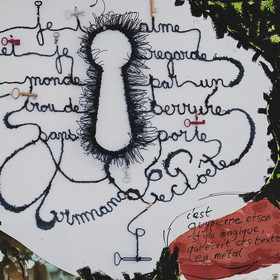 je t'aime
et je regarde
monde par un
trou de serrure
sans porte
Armand G
c'est
style magique,
qui écrit ces textes
en métal